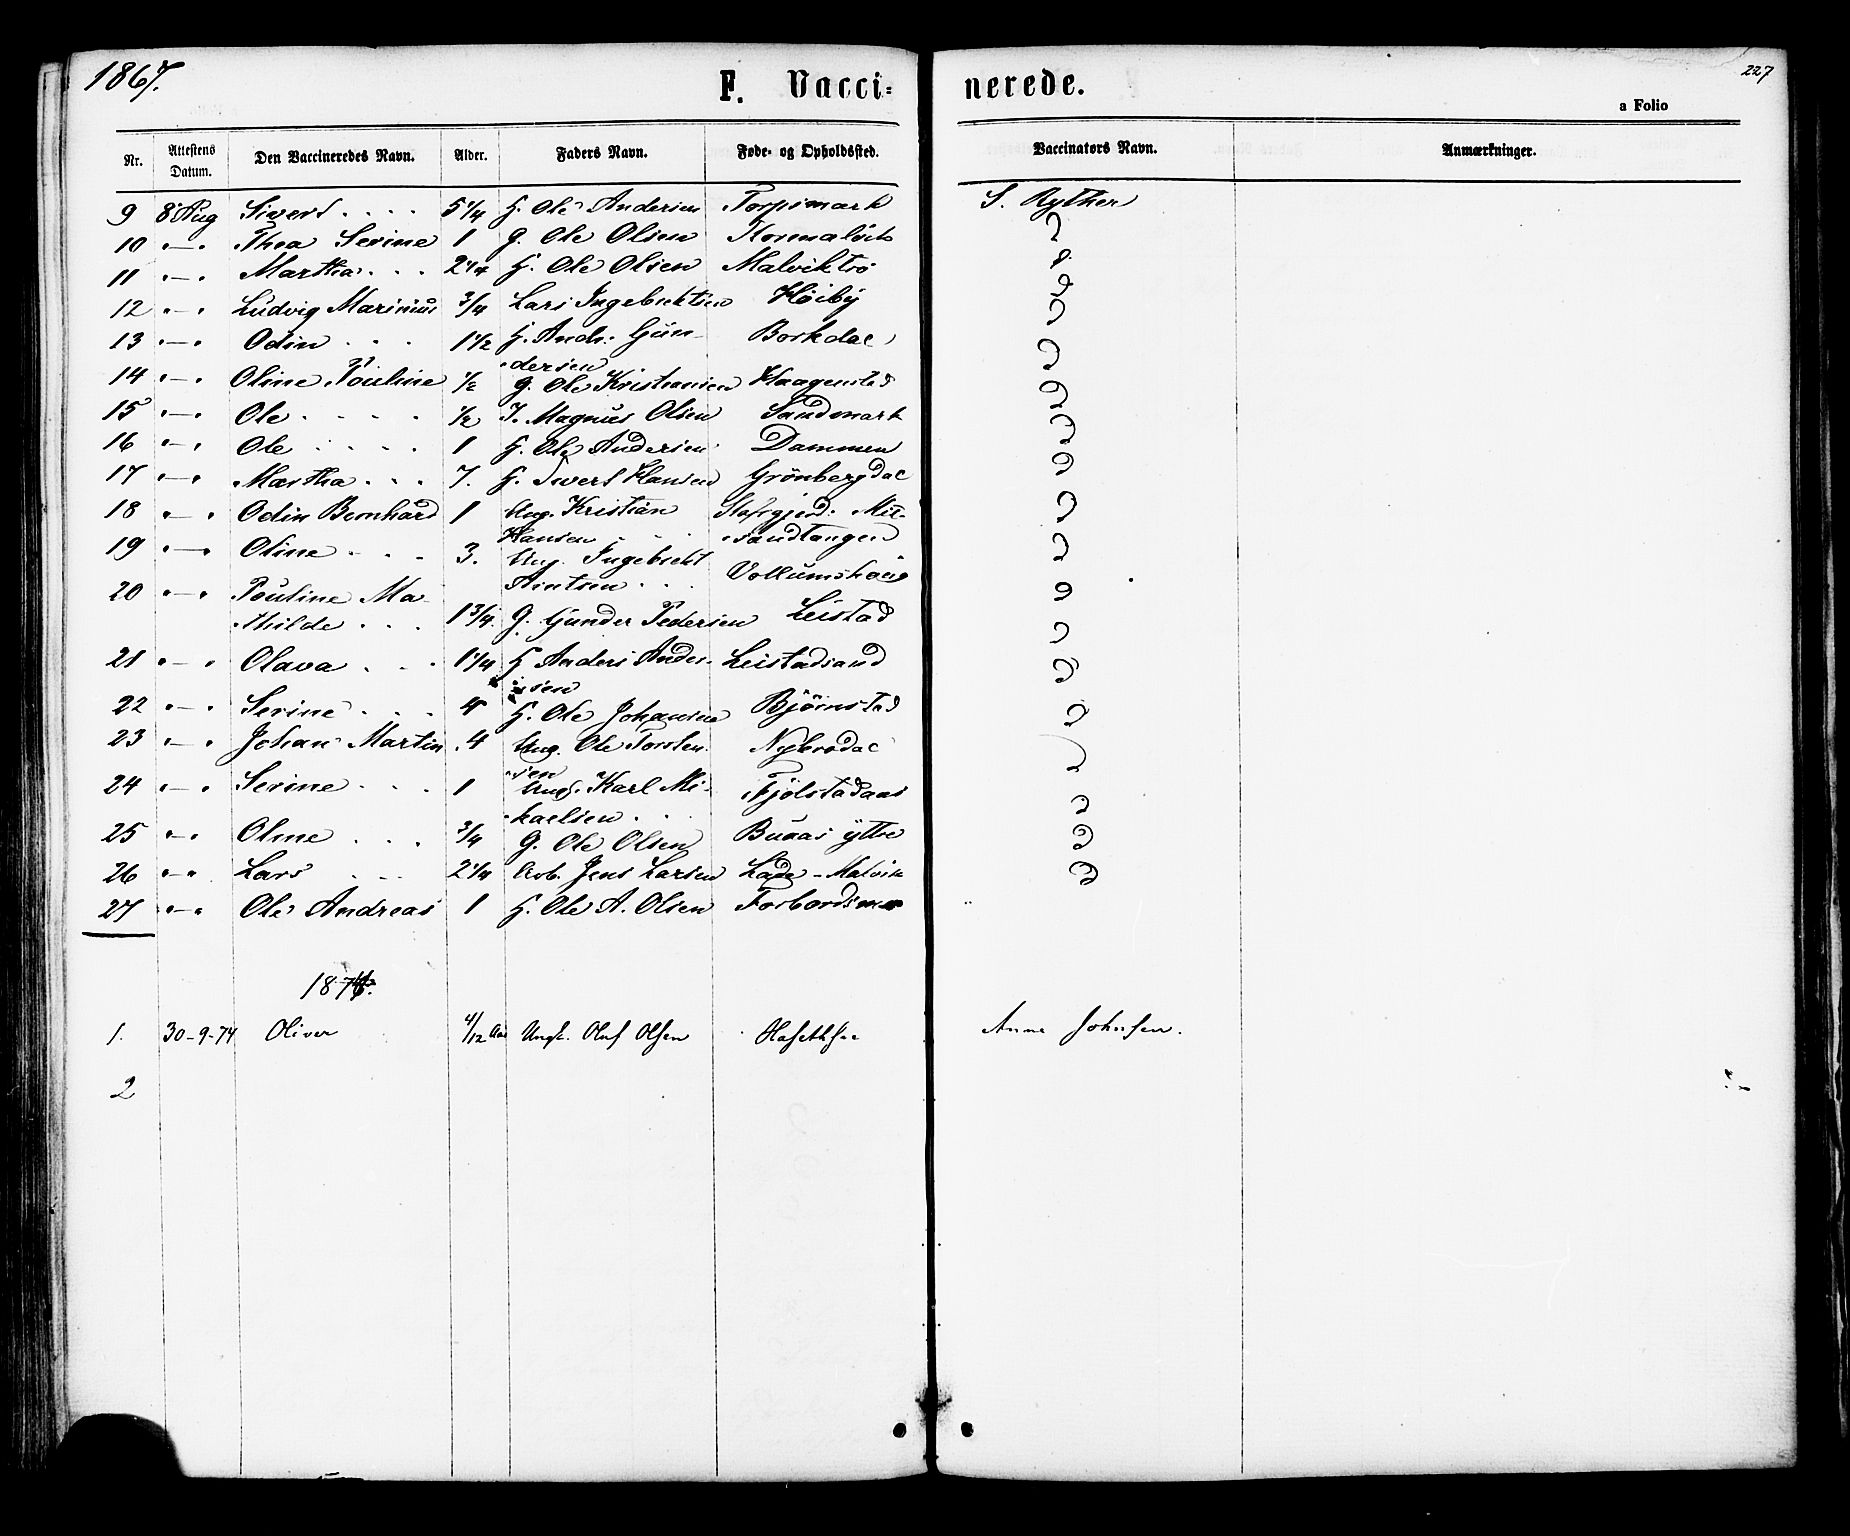 1867.
F. Vacci=
nerede.
227
a Folio
Nr. Attestens Datum. Den Vaccineredes Navn. Alder. Faders Navn. Føde- og Opholdssted. Vaccinators Navn. Anmærkninger.
9 8 Aug Sivert . . . . 5 1/4 G. Ole Andersen Torpsmark S. Ryther
10 "—" Thea Serine 1 G. Ole Olsen
11 "—" Martha . . . 2 1/4 G. Ole Olsen Malviktrø
12 "—" Ludvig Marinius 3/4 Lars Ingebrektsen Høiby
13 "—" Odin . . . 1 1/2 G. Andr. Gun-
dersen Borkdal
14 "—" Oline Pouline 1/2 G. Ole Kristiansen Haagenstad
15 "—" Ole . . . . 1/2 I. Magnus Olsen Sandmark
16 "—" Ole . . . . 1 G. Ole Andersen Dammen
17 "—" Martha . . . 7. G. Sivert Hansen Grønbergdal
18 "—" Odin Bernhard 1 Ung. Kristian
Hansen -sandtangen
19 "—" Oline . . . 3. Ung. Ingebrekt
Arntsen . . Vollumshaug
20 "—" Pouline Ma-
thilde . . . 1 3/4. G. Gunder Pedersen Leistad
21 "—" Olava . . . 1 1/4 G Anders Ander-
sen Leistadsand
22 "—" Serine . . . 4 G. Ole Johansen Bjørnstad
23 "—" Johan Martin 4 Ung. Ole Torsten-
sen Nybrodal
24 "—" Serine . . . 1 Ung. Karl Mi-
kaelsen . . Fjølstadaas
25 "—" Oline . . . 3/4 G. Ole Olsen Buaas ytre
26 "—" Lars . . 2 1/4 Arb. Jens Larsen Lade - Malvik
27 "—" Ole Andreas 1 G. Ole A. Olsen Forbordsm
1874.
1. 30-9-74 Oliver 4/12 Aar Ungk. Oluf Olsen Anne Johnsen.
2